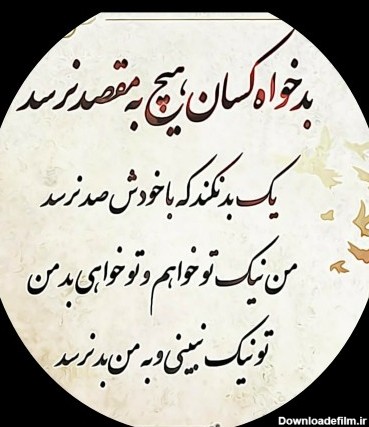 بدخواه کسان هیچ به مقصد نرسد
یک بد نکند که با خودش صد نرسد
من نیک تو خواهم و تو خواهی بد من
تو نیک نبینی و به من بد نرسد
Downloadefilm.ir